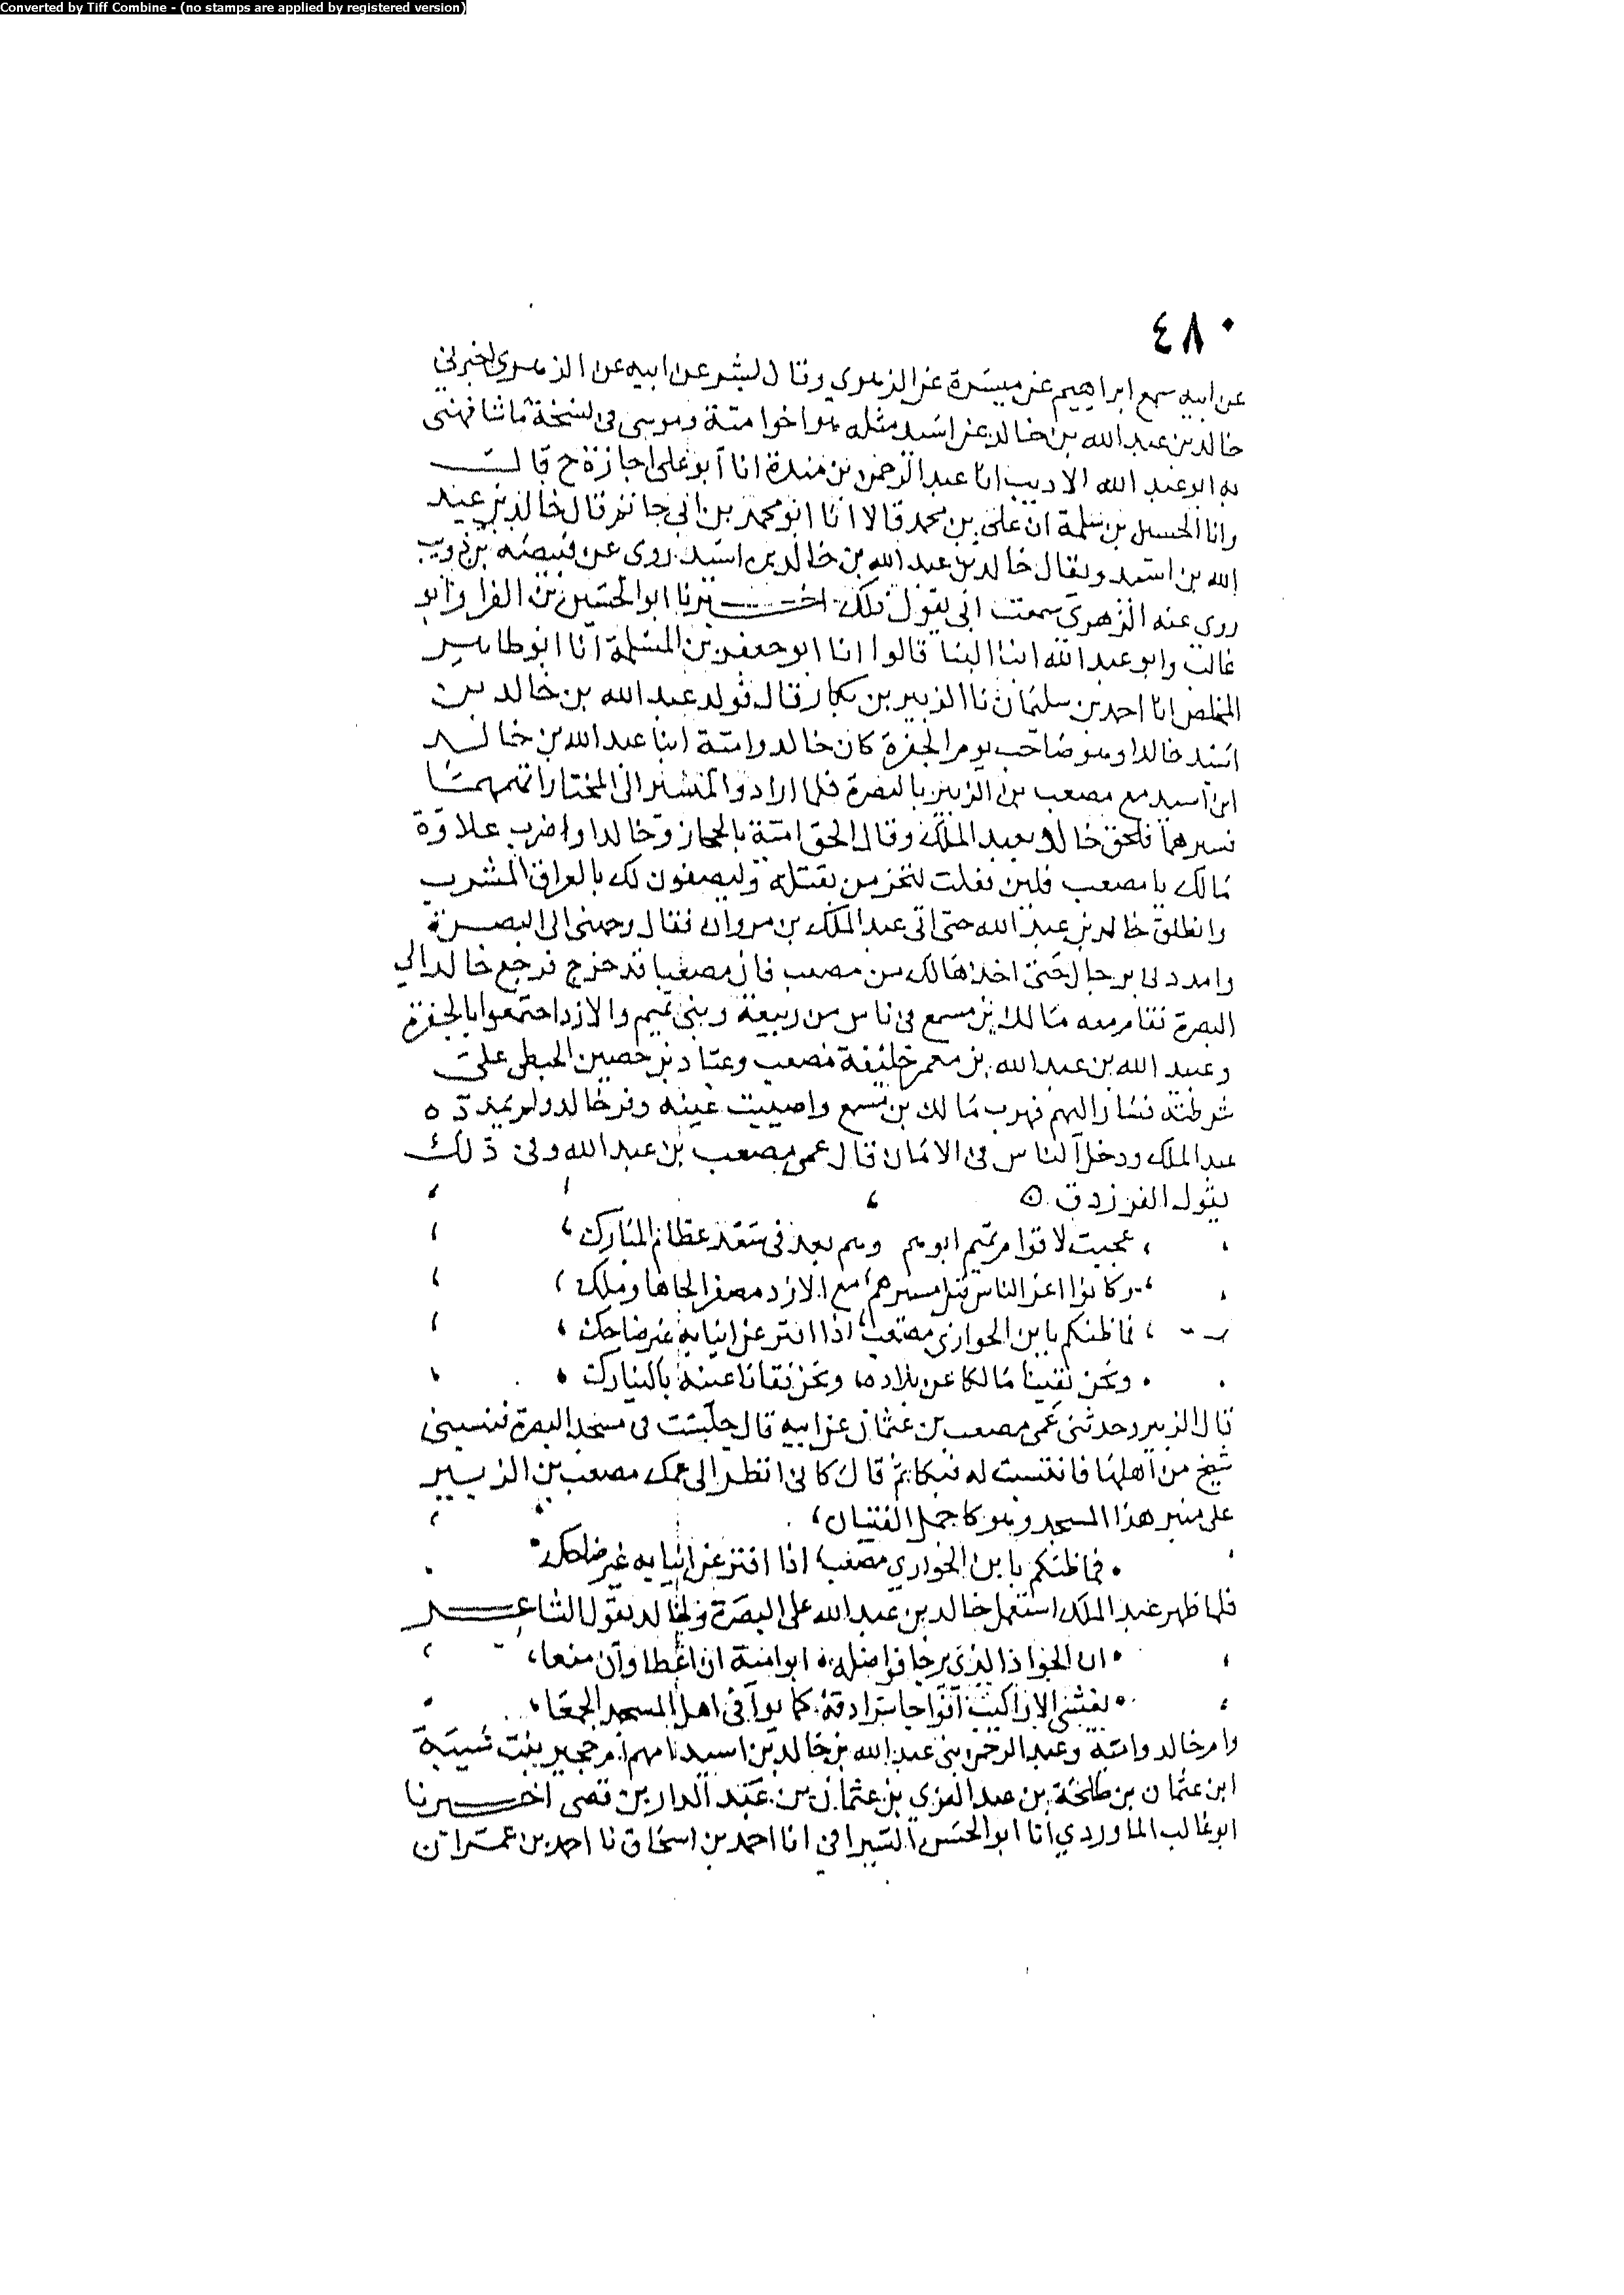 Converted by Tiff Combine - (no stamps are applied by registered version)
٤٨٠
عن ابيه سمع ابراهيم عن ميسرة عن الزهري وقال بشر عن ابيه عن الزهري اخبرني
خالد بن عبد الله بن خالد عن اسيد مثله هو اخو امية وهو في نسخة ما شافهني
به ابو عبد الله الاديب انا عبد الرحمن بن مندة انا ابو علي اجازة ح قالـــ
وانا الحسين بن سلمة ان علي بن محمد قالا انا ابو محمد بن ابي حاتم قال خالد بن عبد
الله بن اسيد ويقال خالد بن عبد الله بن خالد بن اسيد روى عن قبيصة بن ذويب
روى عنه الزهري سمعت ابي يقول ذلك اخبرنا ابو الحسين بن الفرا وابو
غالب وابو عبد الله ابنا البنا قالوا انا ابو جعفر بن المسلمة انا ابو طاهر
المخلص انا احمد بن سليمان نا الزبير بن بكار قال فولد عبد الله بن خالد بن
اسيد خالدا وهو صاحب يوم الجفرة كان خالد وامية ابنا عبد الله بن خالد
ابن اسيد مع مصعب بن الزبير بالبصرة فلما اراد المسير الى المختار اتهمهما
فسيرهما فلحق خالد بعبد الملك وقال الحق امية بالحجاز وخالدا واضرب علاوة
مالك يا مصعب فلين فعلت لتحزمن بقتله وليصفون لك بالعراق المشرب
وانطلق خالد بن عبد الله حتى اتى عبد الملك بن مروان فقال وجهني الى البصرة
وامدد لي برجال حتى اخذها لك من مصعب فان مصعبا قد خرج فرجع خالد الى
البصرة فقام معه مالك بن مسمع في ناس من ربيعة وبني تميم والازد اجتمعوا بالجفرة
وعبيد الله بن عبد الله بن معمر خليفة مصعب وعباد بن حصين الحبطي على
شرطته فسار اليهم فهرب مالك بن مسمع واصيبت عينه وفر خالد ولم يمدده
عبد الملك ودخل الناس في الامان قال عمي مصعب بن عبد الله وفي ذلك
يقول الفرزدق
عجبت لاقوام تميم ابوهم وهم بعد في سعد عظام المبارك
وكانوا اعز الناس قبل مسيرهم مع الازد مصفرا لحاها ومالك
فما ظنكم بابن الحواري مصعب اذا افتر عن انيابه غير ضاحك
ونحن نفينا مالكا عن بلاده ونحن فقانا عينه بالنيازك
قال الزبير وحدثني عمي مصعب بن عثمان عن ابيه قال جلست في مسجد البصرة فنسبني
شيخ من اهلها فانتسبت له فبكا ثم قال كاني انظر الى عمك مصعب بن الزبير
على منبر هذا المسجد وهو كاجمل الفتيان
فما ظنكم بابن الحواري مصعب اذا افتر عن انيابه غير ضاحك
فلما ظهر عبد الملك استعمل خالد بن عبد الله على البصرة ولخالد يقول الشاعر
ان الجواد الذي يرجا فواضله ابو امية ان اعطا وان منعا
يغشى الاراكيب افواجا سرادقه كما يوافي اهل المسجد الجمعا
وام خالد وامية وعبد الرحمن بني عبد الله بن خالد بن اسيد امهم ام حجير بنت شيبة
ابن عثمان بن طلحة بن عبد العزى بن عثمان بن عبد الدار بن قصي اخبرنا
ابو غالب الماوردي انا ابو الحسن السيرافي انا احمد بن اسحاق نا احمد بن عمران